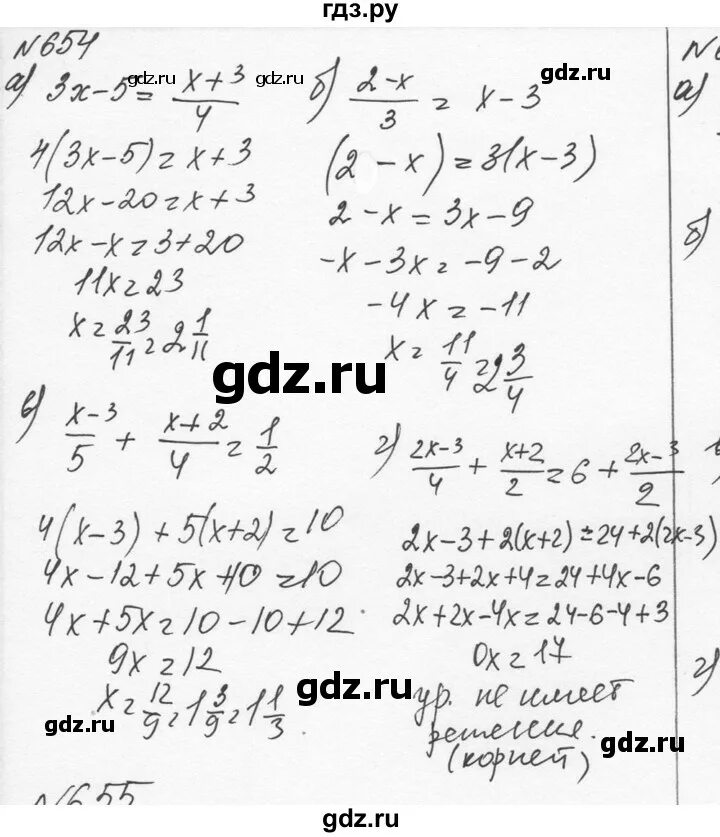 гдз.ру
№654
а) 3x-5= (x+3)/4
4(3x-5)=x+3
12x-20=x+3
12x-x=3+20
11x=23
x=23/11=2 1/11
б) (2-x)/3 = x-3
(2-x)=3(x-3)
2-x=3x-9
-x-3x=-9-2
-4x=-11
x= 11/4 =2 3/4
в) (x-3)/5 + (x+2)/4 = 1/2
4(x-3)+5(x+2)=10
4x-12+5x+10=10
4x+5x=10-10+12
9x=12
x=12/9=1 3/9=1 1/3
г) (2x-3)/4 + (x+2)/2 = 6 + (2x-3)/2
2x-3+2(x+2)=24+2(2x-3)
2x-3+2x+4=24+4x-6
2x+2x-4x=24-6-4+3
0x=17
ур. не имеет
решения.
(корней)
№655
а)
б)
г)
gdz.ru
gdz.ru
gdz.ru
gdz.ru
gdz.ru
gdz.ru
gdz.ru
gdz.ru